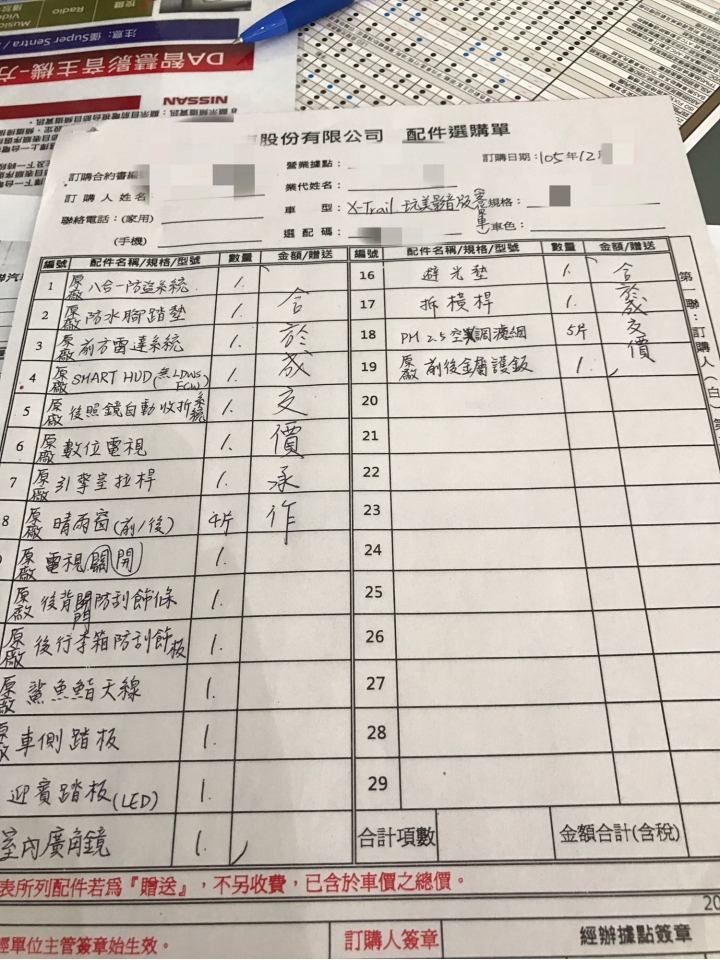 注意:僅Super Sentra /
Radio
DA智慧影音主機-方
NISSAN
股份有限公司 配件選購單
訂購合約書編
營業據點:
訂購日期:105年12
訂購人姓名
業代姓名:
聯絡電話:(家用)
車 型: X-Trail 玩美影音版
規格:
(手機)
選配碼:
車色:
編號 配件名稱/規格/型號 數量 金額/贈送 編號 配件名稱/規格/型號 數量 金額/贈送
1 原廠 八合一防盜系統 1.
2 原廠 防水腳踏墊 1.
3 原廠 前方雷達系統 1.
4 原廠 SMART HUD(無LDWS FCW) 1.
5 原廠 後照鏡自動收折系統 1.
6 原廠 數位電視 1.
7 原廠 引擎室拉桿 1.
8 原廠 晴雨窗(前/後) 4片
原廠 電視關開 1.
原廠 後背門防刮飾條 1.
原廠 後行李箱防刮飾板 1.
原廠 鯊魚鰭天線 1.
原廠 車側踏板 1.
迎賓踏板(LED) 1.
室內廣角鏡 1.
含於成交價承作
16 避光墊 1.
17 拆橫桿 1.
18 PM 2.5空調濾網 5片
19 原廠 前後金屬護鈑 1.
含於成交價
20
21
22
23
24
25
26
27
28
29
合計項數
金額合計(含稅)
第一聯:訂購人(白
表所列配件若為『贈送』,不另收費,已含於車價之總價。
20
經單位主管簽章始生效。
訂購人簽章
經辦據點簽章